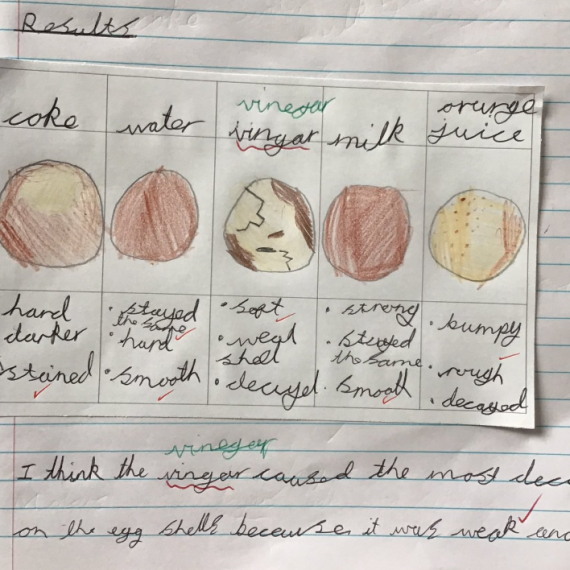 Results
coke
water
vinegar
vingar
milk
orunge
juice
hard
darker
stained
• stayed
the same
• hard
• smooth
• soft
• weak
shell
• decayed
• strong
• stayed
the same
• smooth
• bumpy
• rough
• decayed
vinegar
I think the vingar caused the most deca
on the egg shells because it was weak and